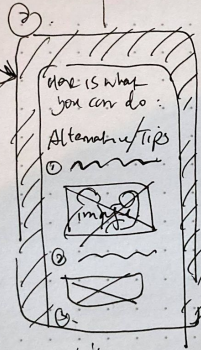 3.
Here is what
you can do :
Alternative/Tips
1
image
2
3